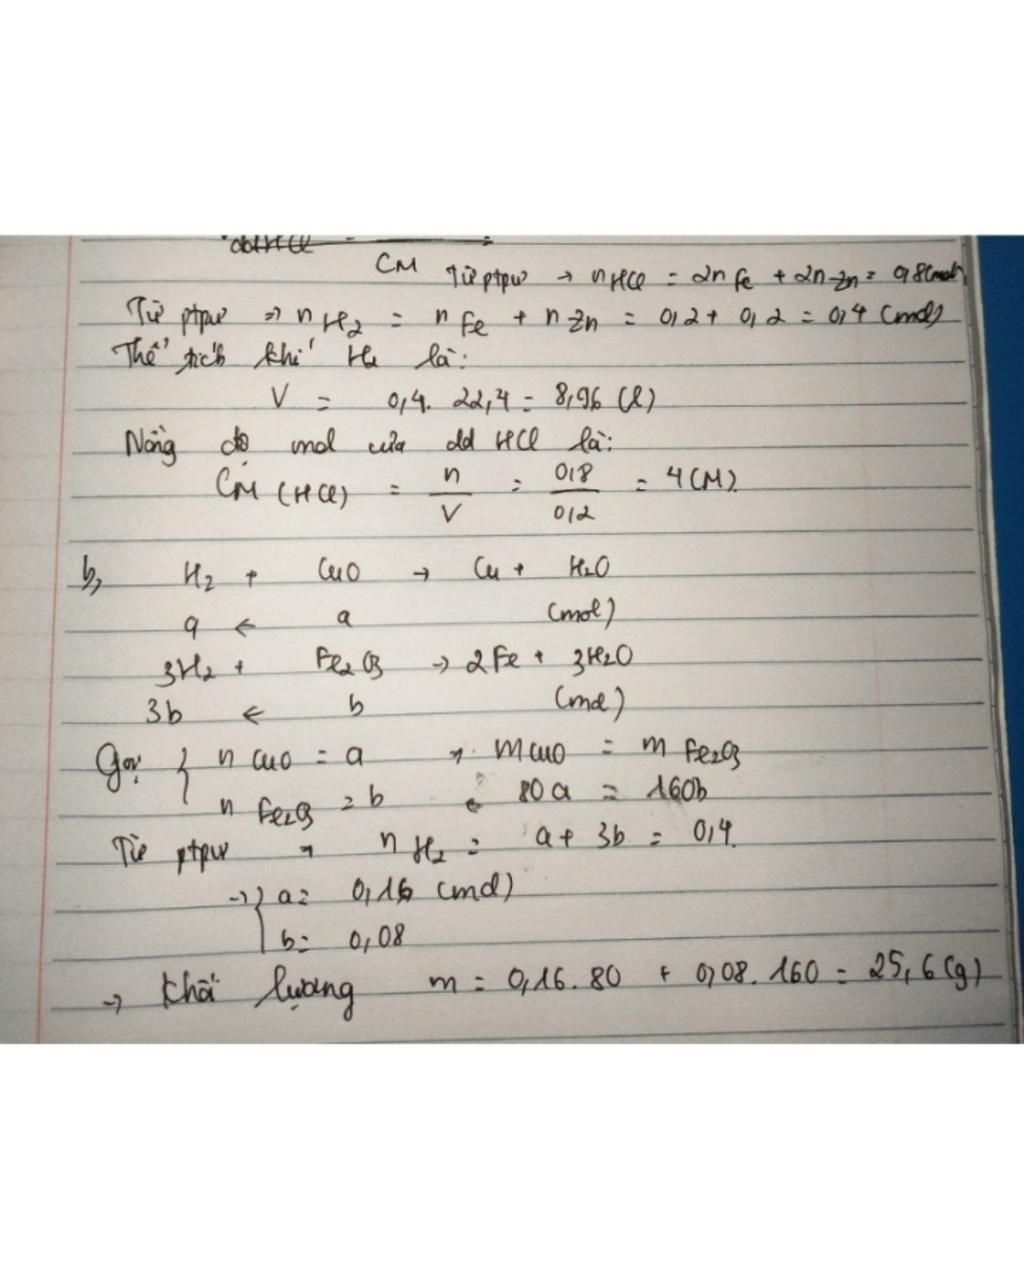 CM Từ ptpư → nHCl = 2nFe + 2nZn = 0,8(mol)
Từ ptpư => nH2 = nFe + nZn = 0,2 + 0,2 = 0,4 (mol)
Thể tích khí H2 là:
V = 0,4. 22,4 = 8,96 (l)
Nồng độ mol của dd HCl là:
CM (HCl) = n/V = 0,8/0,2 = 4(M).
b, H2 + CuO → Cu + H2O
a ← a (mol)
3H2 + Fe2O3 → 2Fe + 3H2O
3b ← b (mol)
Gọi { nCuO = a → mCuO = mFe2O3
nFe2O3 = b 80a = 160b
Từ ptpư → nH2 = a + 3b = 0,4.
→ { a = 0,16 (mol)
b = 0,08
→ Khối lượng m = 0,16.80 + 0,08.160 = 25,6(g)